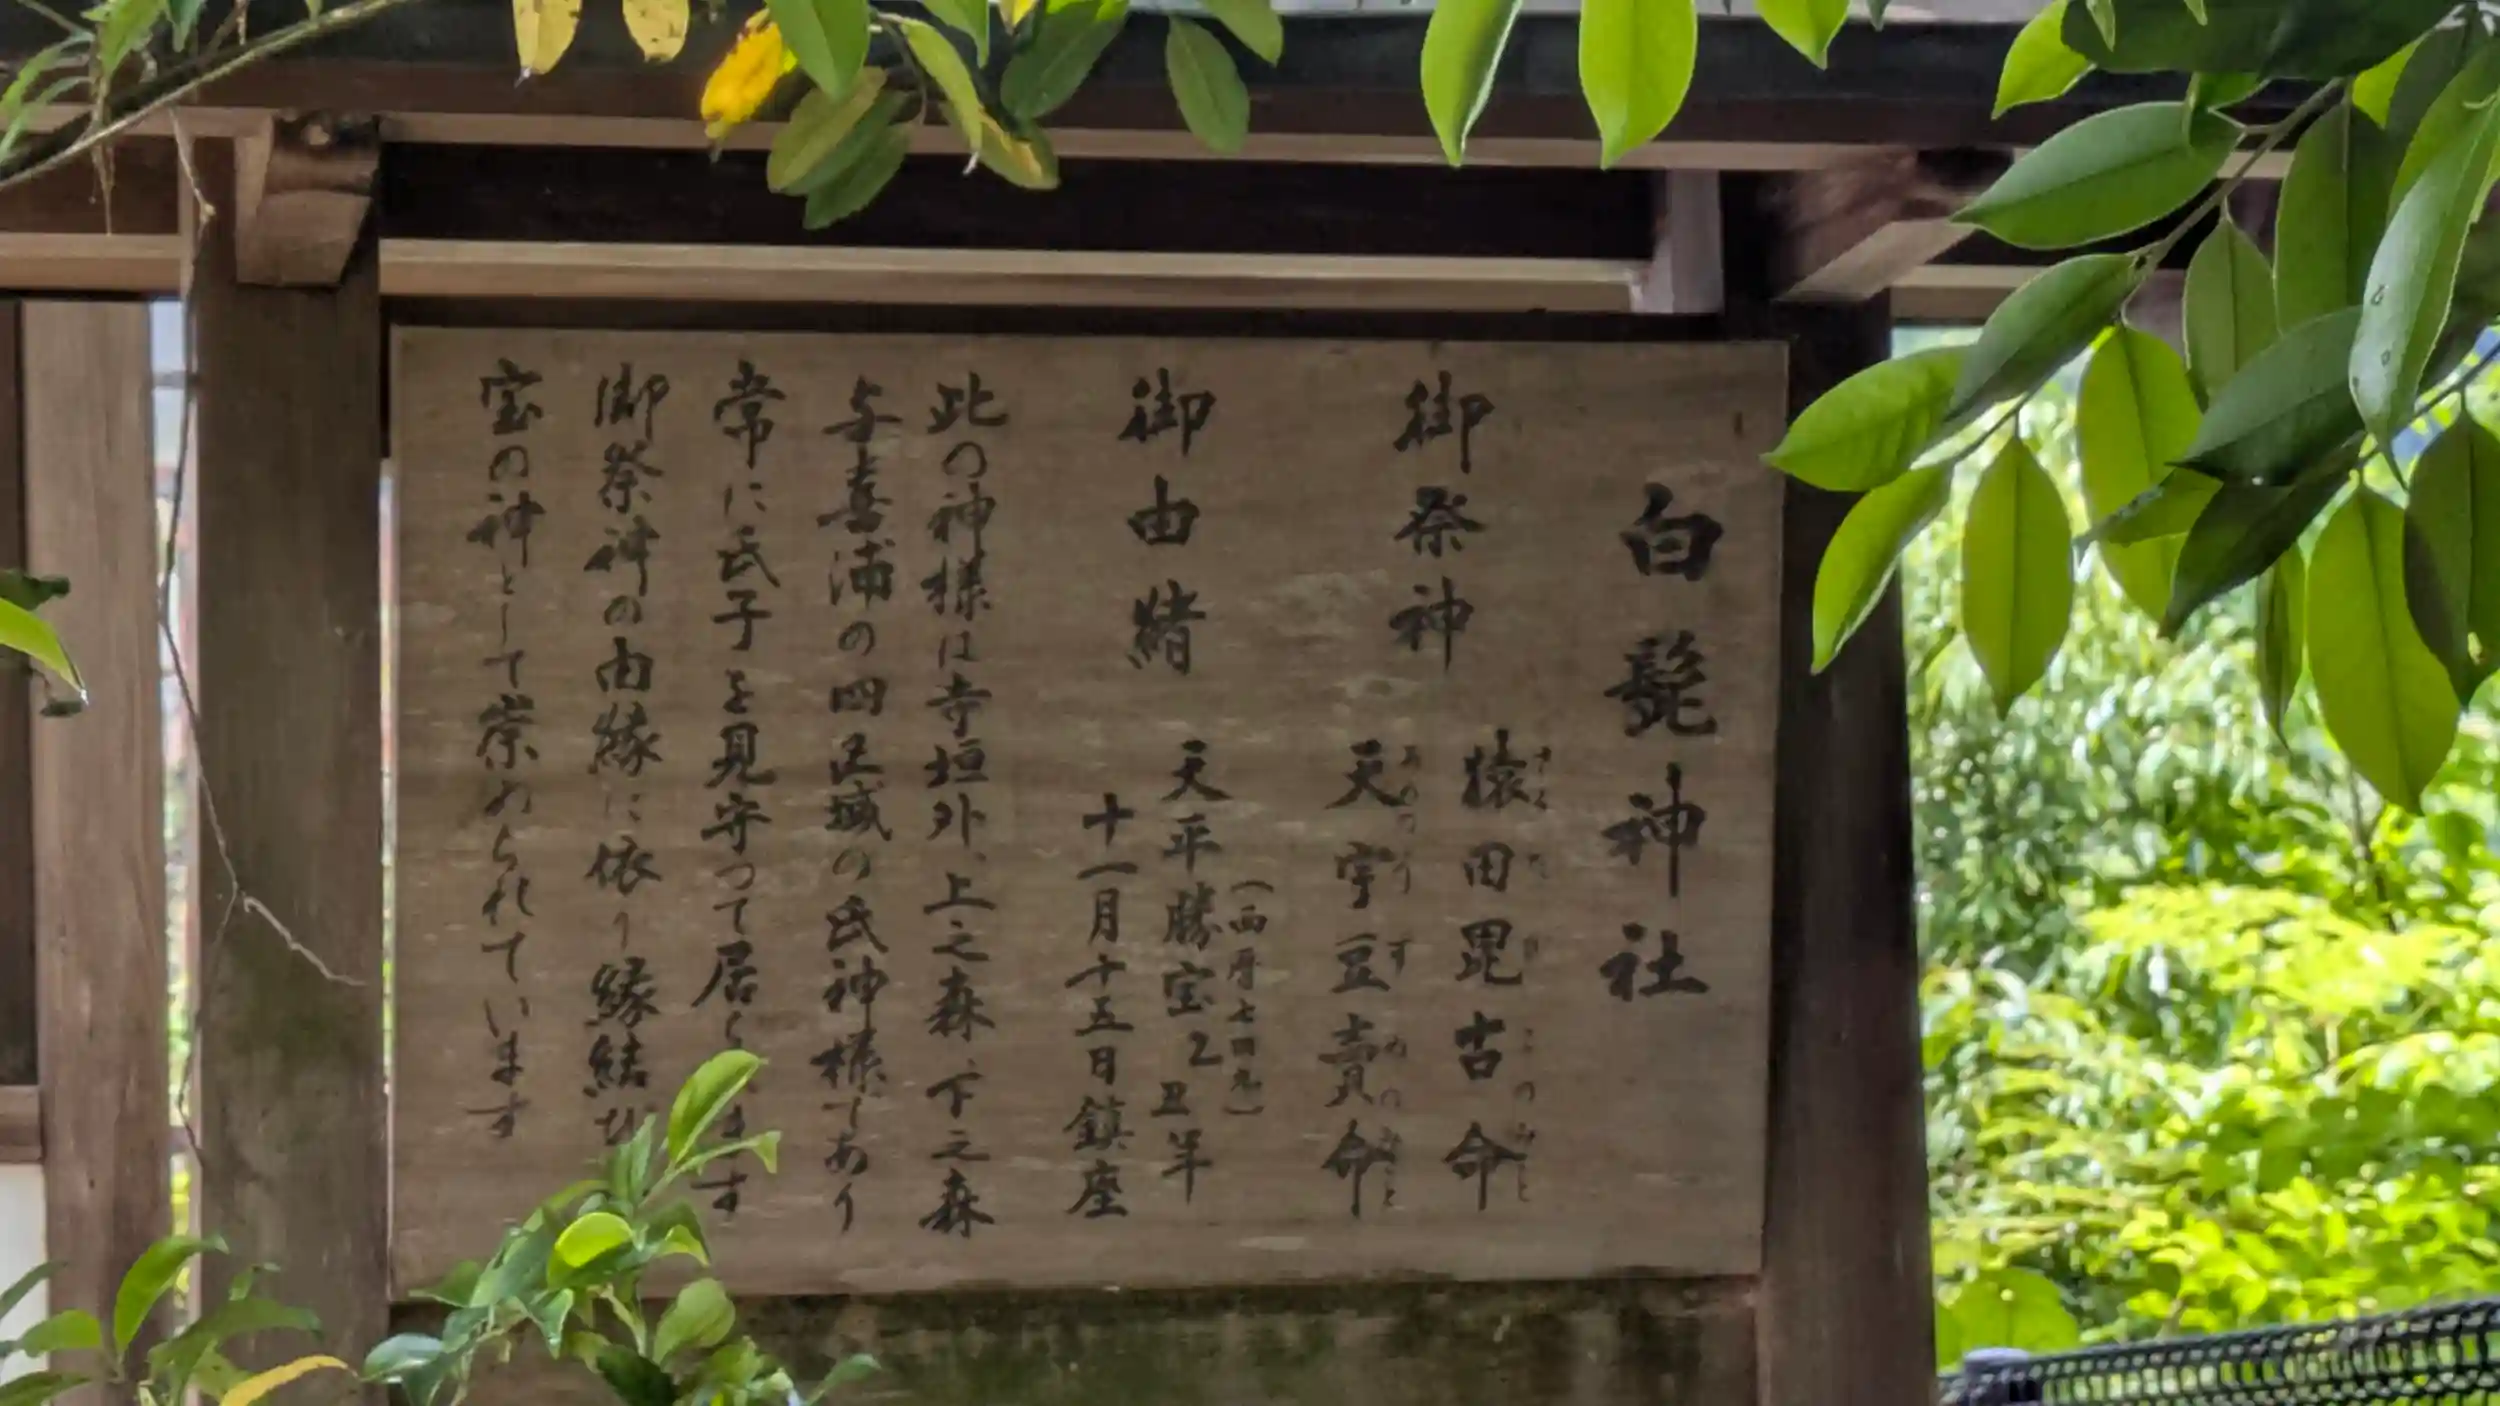 白髭神社
御祭神
猿田毘古命
さるたひこのみこと
天宇豆賣命
あめのうずめのみこと
御由緒
(西暦七四九)
天平勝宝乙丑年
十一月十五日鎮座
此の神様は寺垣外、上之森、下之森
与喜浦の四区域の氏神様であり
常に氏子を見守って居ります
御祭神の由縁に依り縁結び
宝の神として崇められています